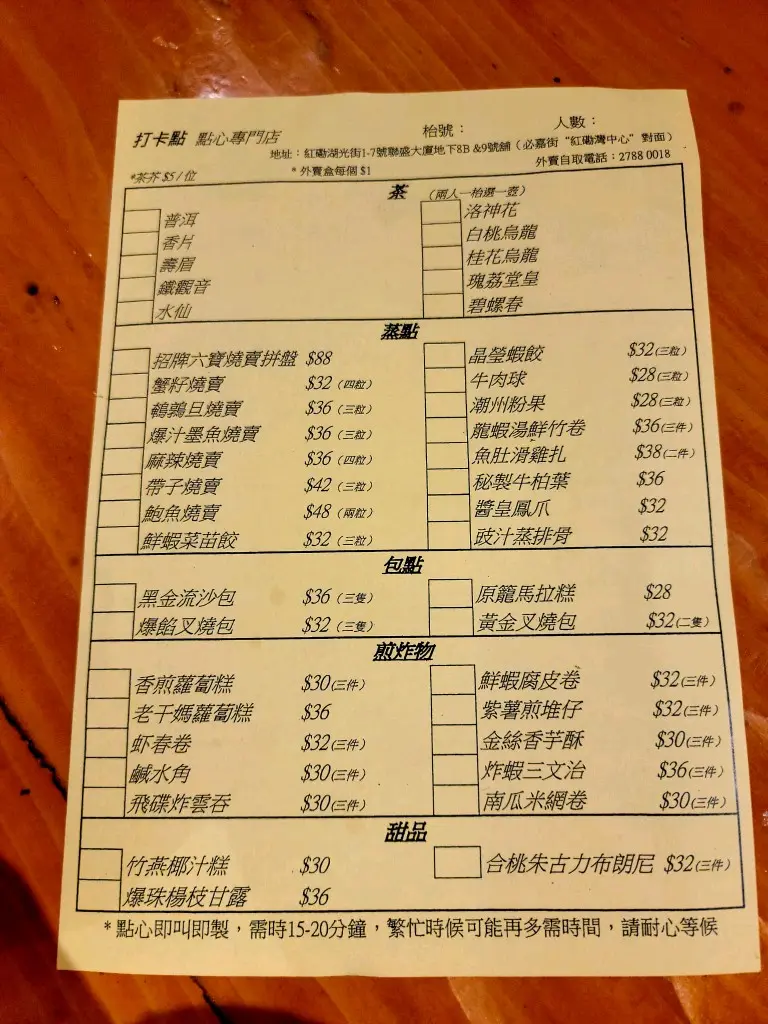 打卡點 點心專門店 枱號： 人數：
地址：紅磡湖光街1-7號聯盛大廈地下8B &9號舖（必嘉街“紅磡灣中心”對面）
*茶芥 $5 / 位 * 外賣盒每個 $1 外賣自取電話：2788 0018
茶 （兩人一枱選一壺）
普洱 洛神花
香片 白桃烏龍
壽眉 桂花烏龍
鐵觀音 瑰荔堂皇
水仙 碧螺春
蒸點
招牌六寶燒賣拼盤 $88 晶瑩蝦餃 $32(三粒)
蟹籽燒賣 $32（四粒） 牛肉球 $28(三粒)
鵪鶉旦燒賣 $36（三粒） 潮州粉果 $28(三粒)
爆汁墨魚燒賣 $36（三粒） 龍蝦湯鮮竹卷 $36(三件)
麻辣燒賣 $36（四粒） 魚肚滑雞扎 $38(二件)
帶子燒賣 $42（三粒） 秘製牛柏葉 $36
鮑魚燒賣 $48（兩粒） 醬皇鳳爪 $32
鮮蝦菜苗餃 $32（三粒） 豉汁蒸排骨 $32
包點
黑金流沙包 $36（三隻） 原籠馬拉糕 $28
爆餡叉燒包 $32（三隻） 黃金叉燒包 $32(二隻)
煎炸物
香煎蘿蔔糕 $30(三件) 鮮蝦腐皮卷 $32(三件)
老干媽蘿蔔糕 $36 紫薯煎堆仔 $32(三件)
虾春卷 $32(三件) 金絲香芋酥 $30(三件)
鹹水角 $30(三件) 炸蝦三文治 $36(三件)
飛碟炸雲吞 $30(三件) 南瓜米網卷 $30(三件)
甜品
竹燕椰汁糕 $30 合桃朱古力布朗尼 $32(三件)
爆珠楊枝甘露 $36
*點心即叫即製，需時15-20分鐘，繁忙時候可能再多需時間，請耐心等候